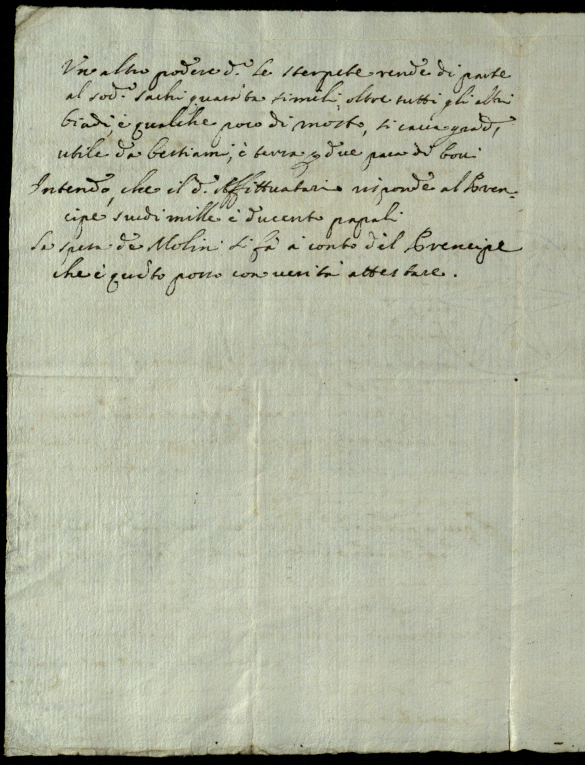 Un altro podere d.º le sterpete rende di parte
al sod.º sachi quaranta simili, oltre tutti gli altri
biadi, è qualche poco di mosto, si caua grad,
utile da bestiami, è terra p due para di boui
Intendo, che il d.º Affittuatario risponde al Pren-
cipe scudi mille è ducento papali
La spesa de Molini si fà à conto del Prencipe
che è quãto posso con verità attestare.